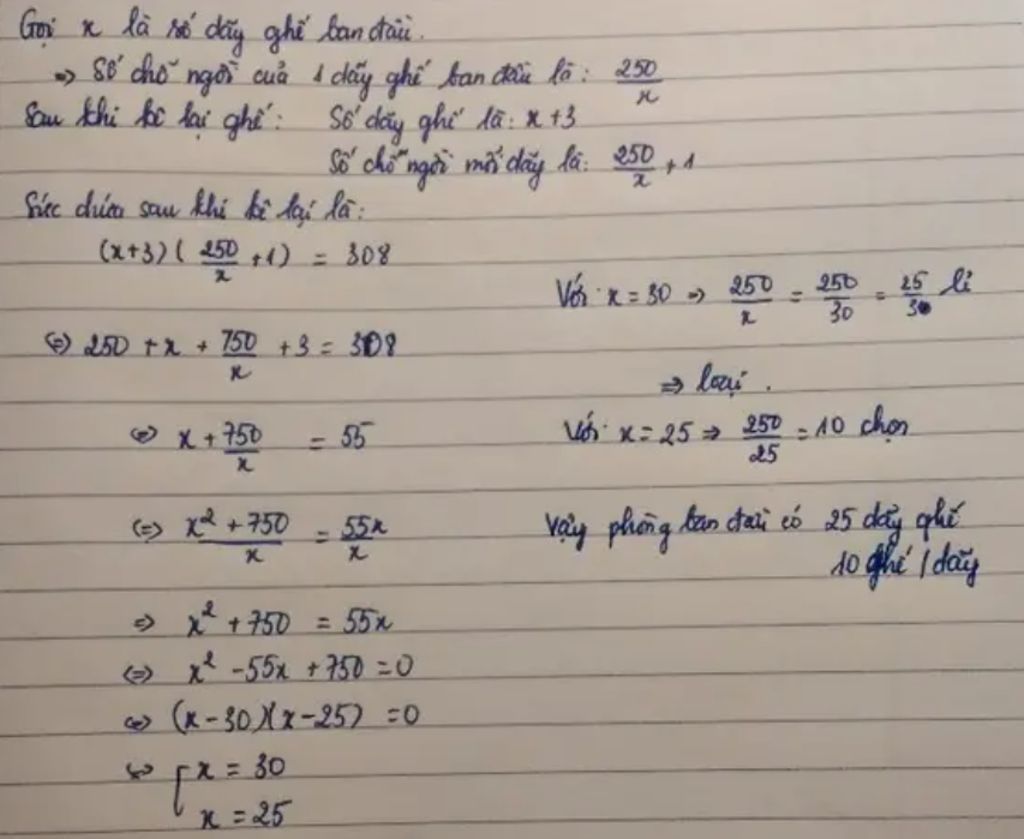 Gọi x là số dãy ghế ban đầu.
=> Số chỗ ngồi của 1 dãy ghế ban đầu là: 250/x
Sau khi kê lại ghế: Số dãy ghế là: x+3
Số chỗ ngồi mỗi dãy là: 250/x + 1
Sức chứa sau khi kê lại là:
(x+3)(250/x + 1) = 308
<=> 250 + x + 750/x + 3 = 308
<=> x + 750/x = 55
<=> (x² + 750)/x = 55x/x
=> x² + 750 = 55x
<=> x² - 55x + 750 = 0
<=> (x-30)(x-25) = 0
<=> [ x = 30
x = 25
Với x = 30 => 250/x = 250/30 = 25/3 lẻ
=> loại.
Với x = 25 => 250/25 = 10 chọn
Vậy phòng ban đầu có 25 dãy ghế
10 ghế / dãy